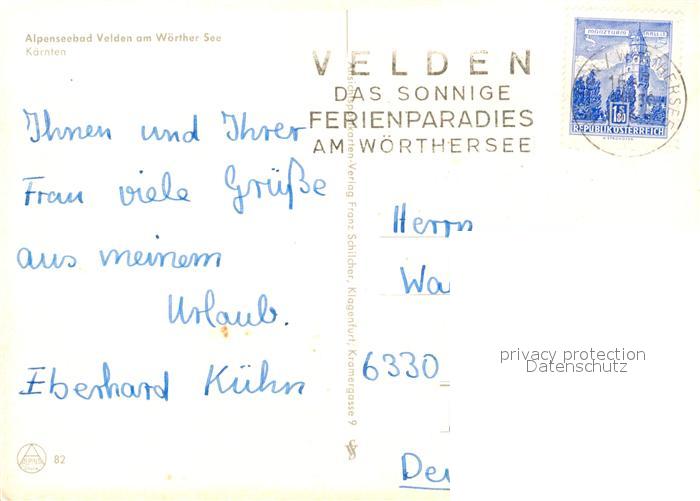 Alpenseebad Velden am Wörther See
Kärnten
VELDEN
DAS SONNIGE
FERIENPARADIES
AM WÖRTHERSEE
MÜNZTURM HALL
REPUBLIK ÖSTERREICH
Ihnen und Ihrer
Frau viele Grüße
aus meinem
Urlaub.
Eberhard Kühn
Ansichtskarten-Verlag Franz Schilcher, Klagenfurt, Kramergasse 9
Herrn
Wa
6330
privacy protection
Datenschutz
82